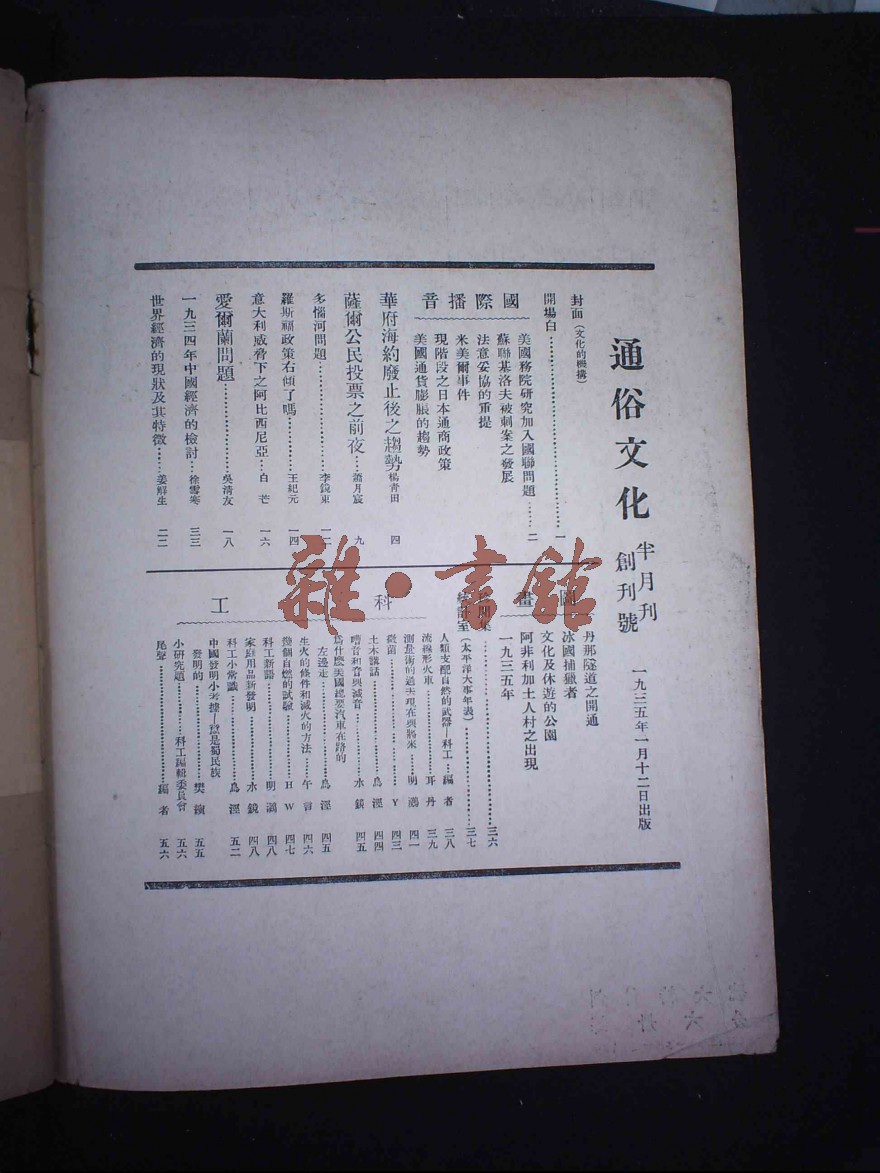 通俗文化 半月刊 創刊號
一九三五年一月十二日出版
封面(文化的機構)
開場白……一
國際播音
美國務院研究加入國聯問題……二
蘇聯基洛夫被刺案之發展
法意妥協的重提
米美爾事件
現階段之日本通商政策
美國通貨膨脹的趨勢
華府海約廢止後之趨勢 楊青田 四
薩爾公民投票之前夜……蕭月宸 九
多惱河問題……李鏡東
羅斯福政策右傾了嗎……王紀元 一四
意大利威脅下之阿比西尼亞……白芒 一六
愛爾蘭問題……吳清友 一八
一九三四年中國經濟的檢討……徐雪寒 三三
世界經濟的現狀及其特徵……姜解生 二二
圖畫
丹那隧道之開通
冰國捕獵者
文化及休遊的公園
阿非利加土人村之出現
一九三五年
……三六
(太平洋大事年表)……三七
科工
人類支配自然的武器—科工……編者 三八
流線形火車……耳丹 三九
測量術的過去現在與將來……明 四一
微菌……Y 四三
土木講話……爲溼 四四
嘈音和音與減音……水鏡 四五
爲什麼美國總要汽車在路的左邊走……爲溼 四五
生火的條件和滅火的方法……午言 四六
幾個自燃的試驗……HW 四七
科工新語……明 四八
家庭用品新發明……水鏡 四八
科工小常識……爲溼 五二
中國發明小考據—醬是蜀民族發明的……樊 五五
小研究題……科工編輯委員會 五六
尾聲……編者 五六
雜·書館